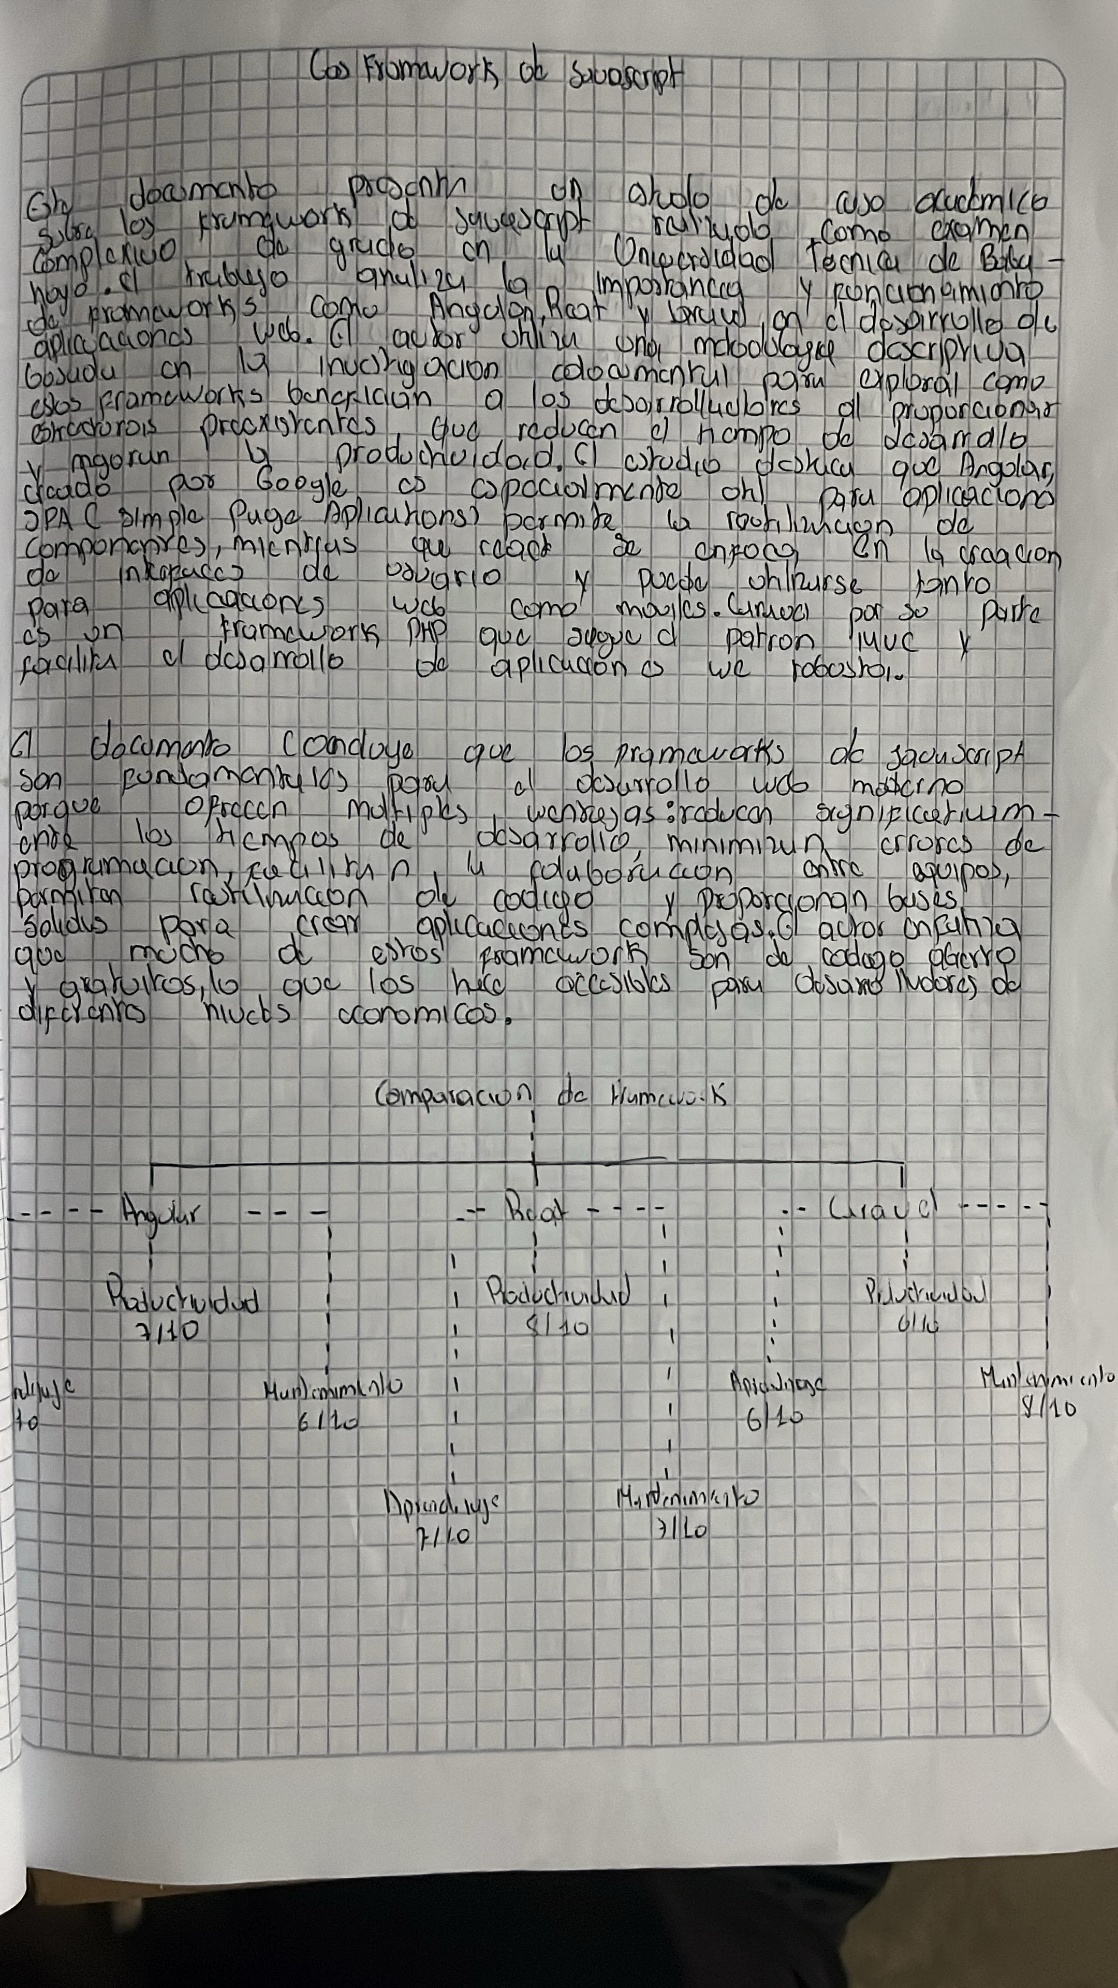 Los Framework de Javascript
Este documento presenta un studo de caso academico
sobre los framework de javascript realizado como examen
complexivo de grado en la Universidad Tecnica de Baba-
hoyo. el trabajo analiza la importancia y funcionamiento
de frameworks como Angular, React y laravel en el desarrollo de
aplicaciones web. El autor utiliza una metodologia descriptiva
basada en la investigacion documental para explorar como
estos frameworks benefician a los desarrolladores al proporcionar
estructuras preexistentes que reducen el tiempo de desarrollo
y mejoran la productividad. El estudio destaca que Angular,
creado por Google es especialmente util para aplicaciones
SPA (simple Page Aplications) permite la reutilizacion de
componentes, mientras que react se enfoca en la creacion
de interfaces de usuario y puede utilizarse tanto
para aplicaciones web como moviles. Laravel por su parte
es un framework PHP que sigue el patron MVC y
facilita el desarrollo de aplicaciones we robusta.
El documento concluye que los frameworks de javascript
son fundamentales para el desarrollo web moderno
porque ofrecen multiples ventajas: reducen significativam-
ente los tiempos de desarrollo, minimizan errores de
programacion, facilitan la colaboracion entre equipos,
permiten reutilizacion de codigo y proporcionan bases
solidas para crear aplicaciones complejas. El autor enfatiza
que mucho de estos framework son de codigo abierto
y gratuitos, lo que los hace accesibles para desarrolladores de
diferentes niveles economicos.
Comparacion de Framework
Angular React Laravel
Productividad Productividad Productividad
7/10 8/10 6/10
Mantenimiento Aprendizaje Mantenimiento
10 6/10 6/10 8/10
Aprendizaje Mantenimiento
7/10 7/10